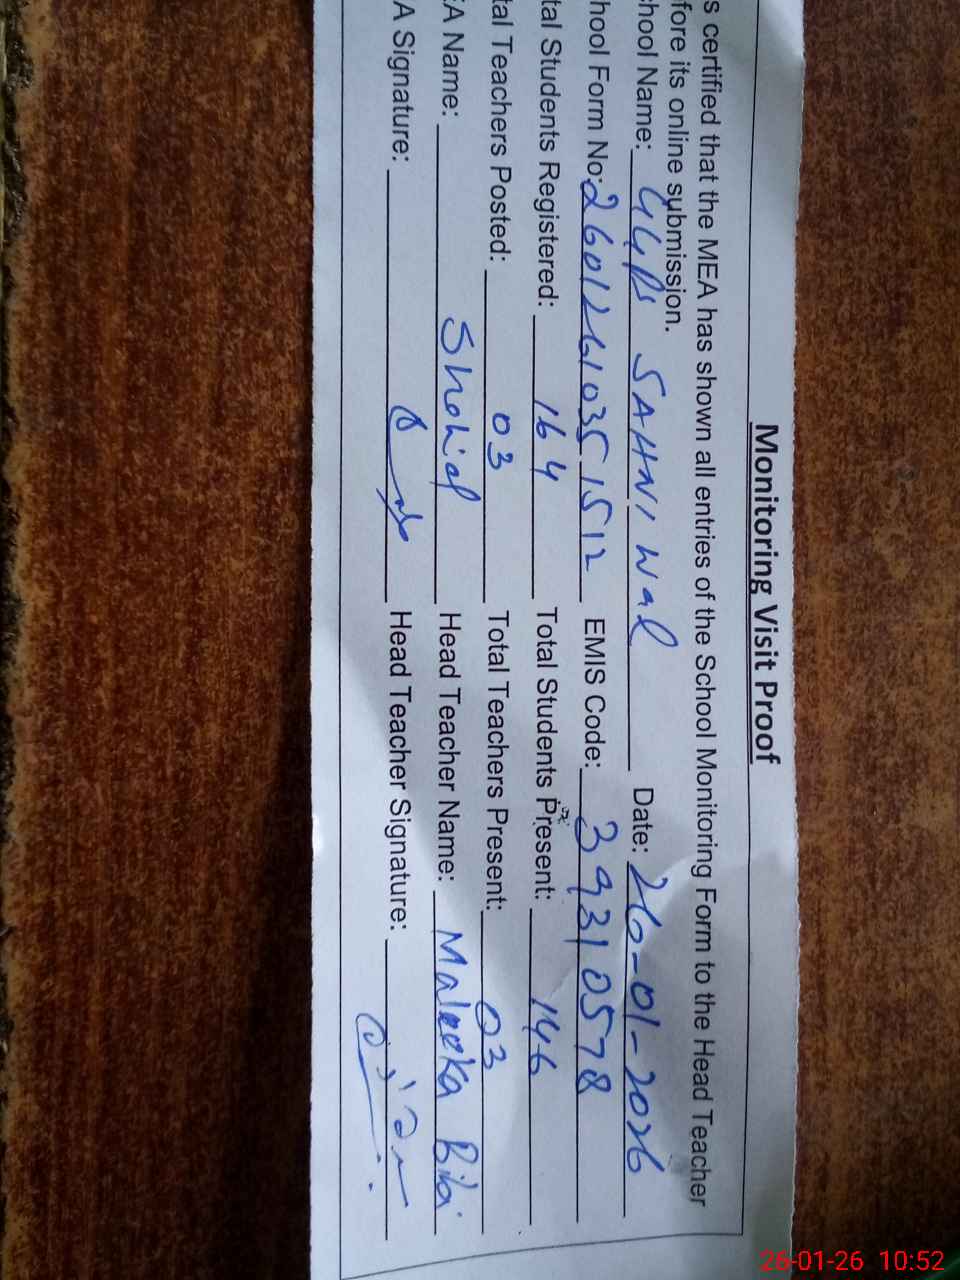 Monitoring Visit Proof
s certified that the MEA has shown all entries of the School Monitoring Form to the Head Teacher
fore its online submission.
chool Name: GGPS SAHNIWAL Date: 26-01-2026
hool Form No: 2601261035 1512 EMIS Code: 39310578
tal Students Registered: 164 Total Students Present: 146
tal Teachers Posted: 03 Total Teachers Present: 03
EA Name: Shohial Head Teacher Name: Maleeka Bibi
A Signature: Head Teacher Signature:
26-01-26 10:52